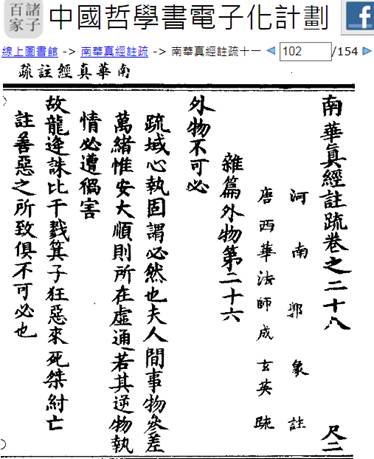 諸子百家
中國哲學書電子化計劃
線上圖書館 -> 南華真經註疏 -> 南華真經註疏十一
102
/154
南華真經註疏
南華真經註疏卷之二十八 尺二
河南郭象註
唐西華法師成玄英疏
雜篇外物第二十六
外物不可必
疏域心執固謂必然也夫人間事物參差
萬緒惟安大順則所在虛通若其逆物執
情必遭禍害
故龍逄誅比干戮箕子狂惡來死桀紂亡
註善惡之所致俱不可必也